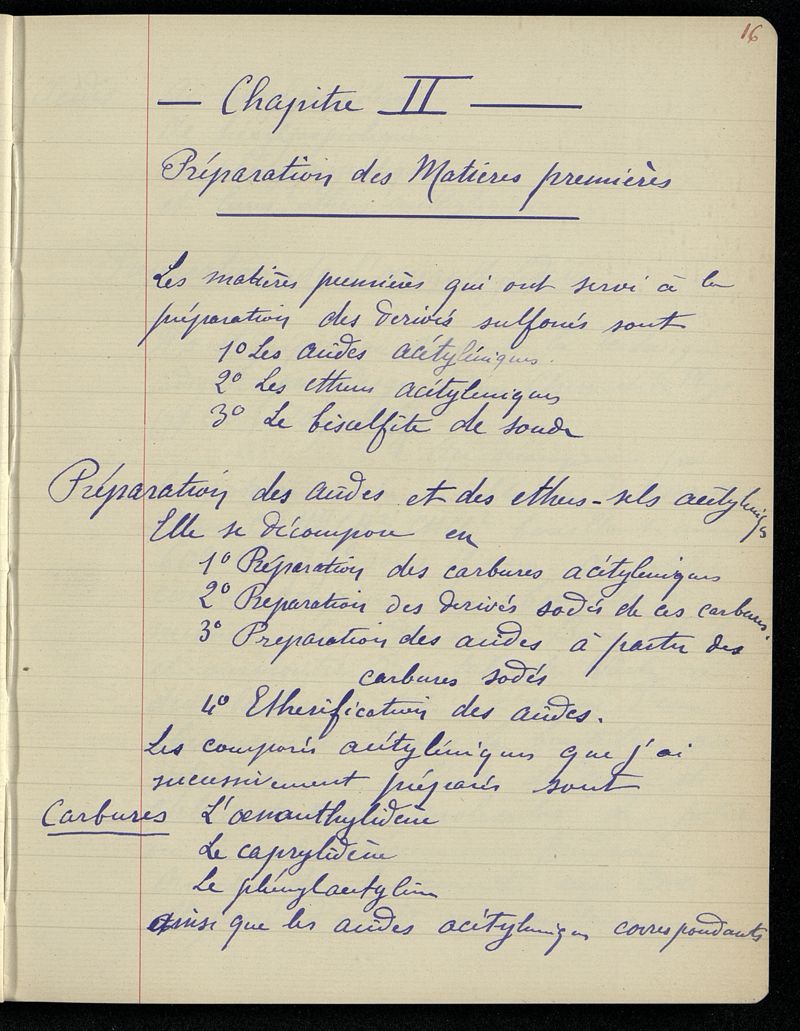 16
— Chapitre II —
Préparation des Matières premières
Les matières premières qui ont servi à la
préparation des derivés sulfonés sont
1º Les acides acétyléniques.
2º Les ethers acétyleniques
3º Le bisulfite de soude
Préparation des acides et des ethers-sels acétyléniqs
Elle se décompose en
1º Préparation des carbures acétyleniques
2º Preparation des derivés sodés de ces carbures.
3º Preparation des acides à partir des
carbures sodés
4º Etherification des acides.
Les composés acétyléniques que j'ai
successivement préparés sont
Carbures L'œnanthylidène
Le caprylidène
Le phénylacetylène
ainsi que les acides acétyleniques correspondants